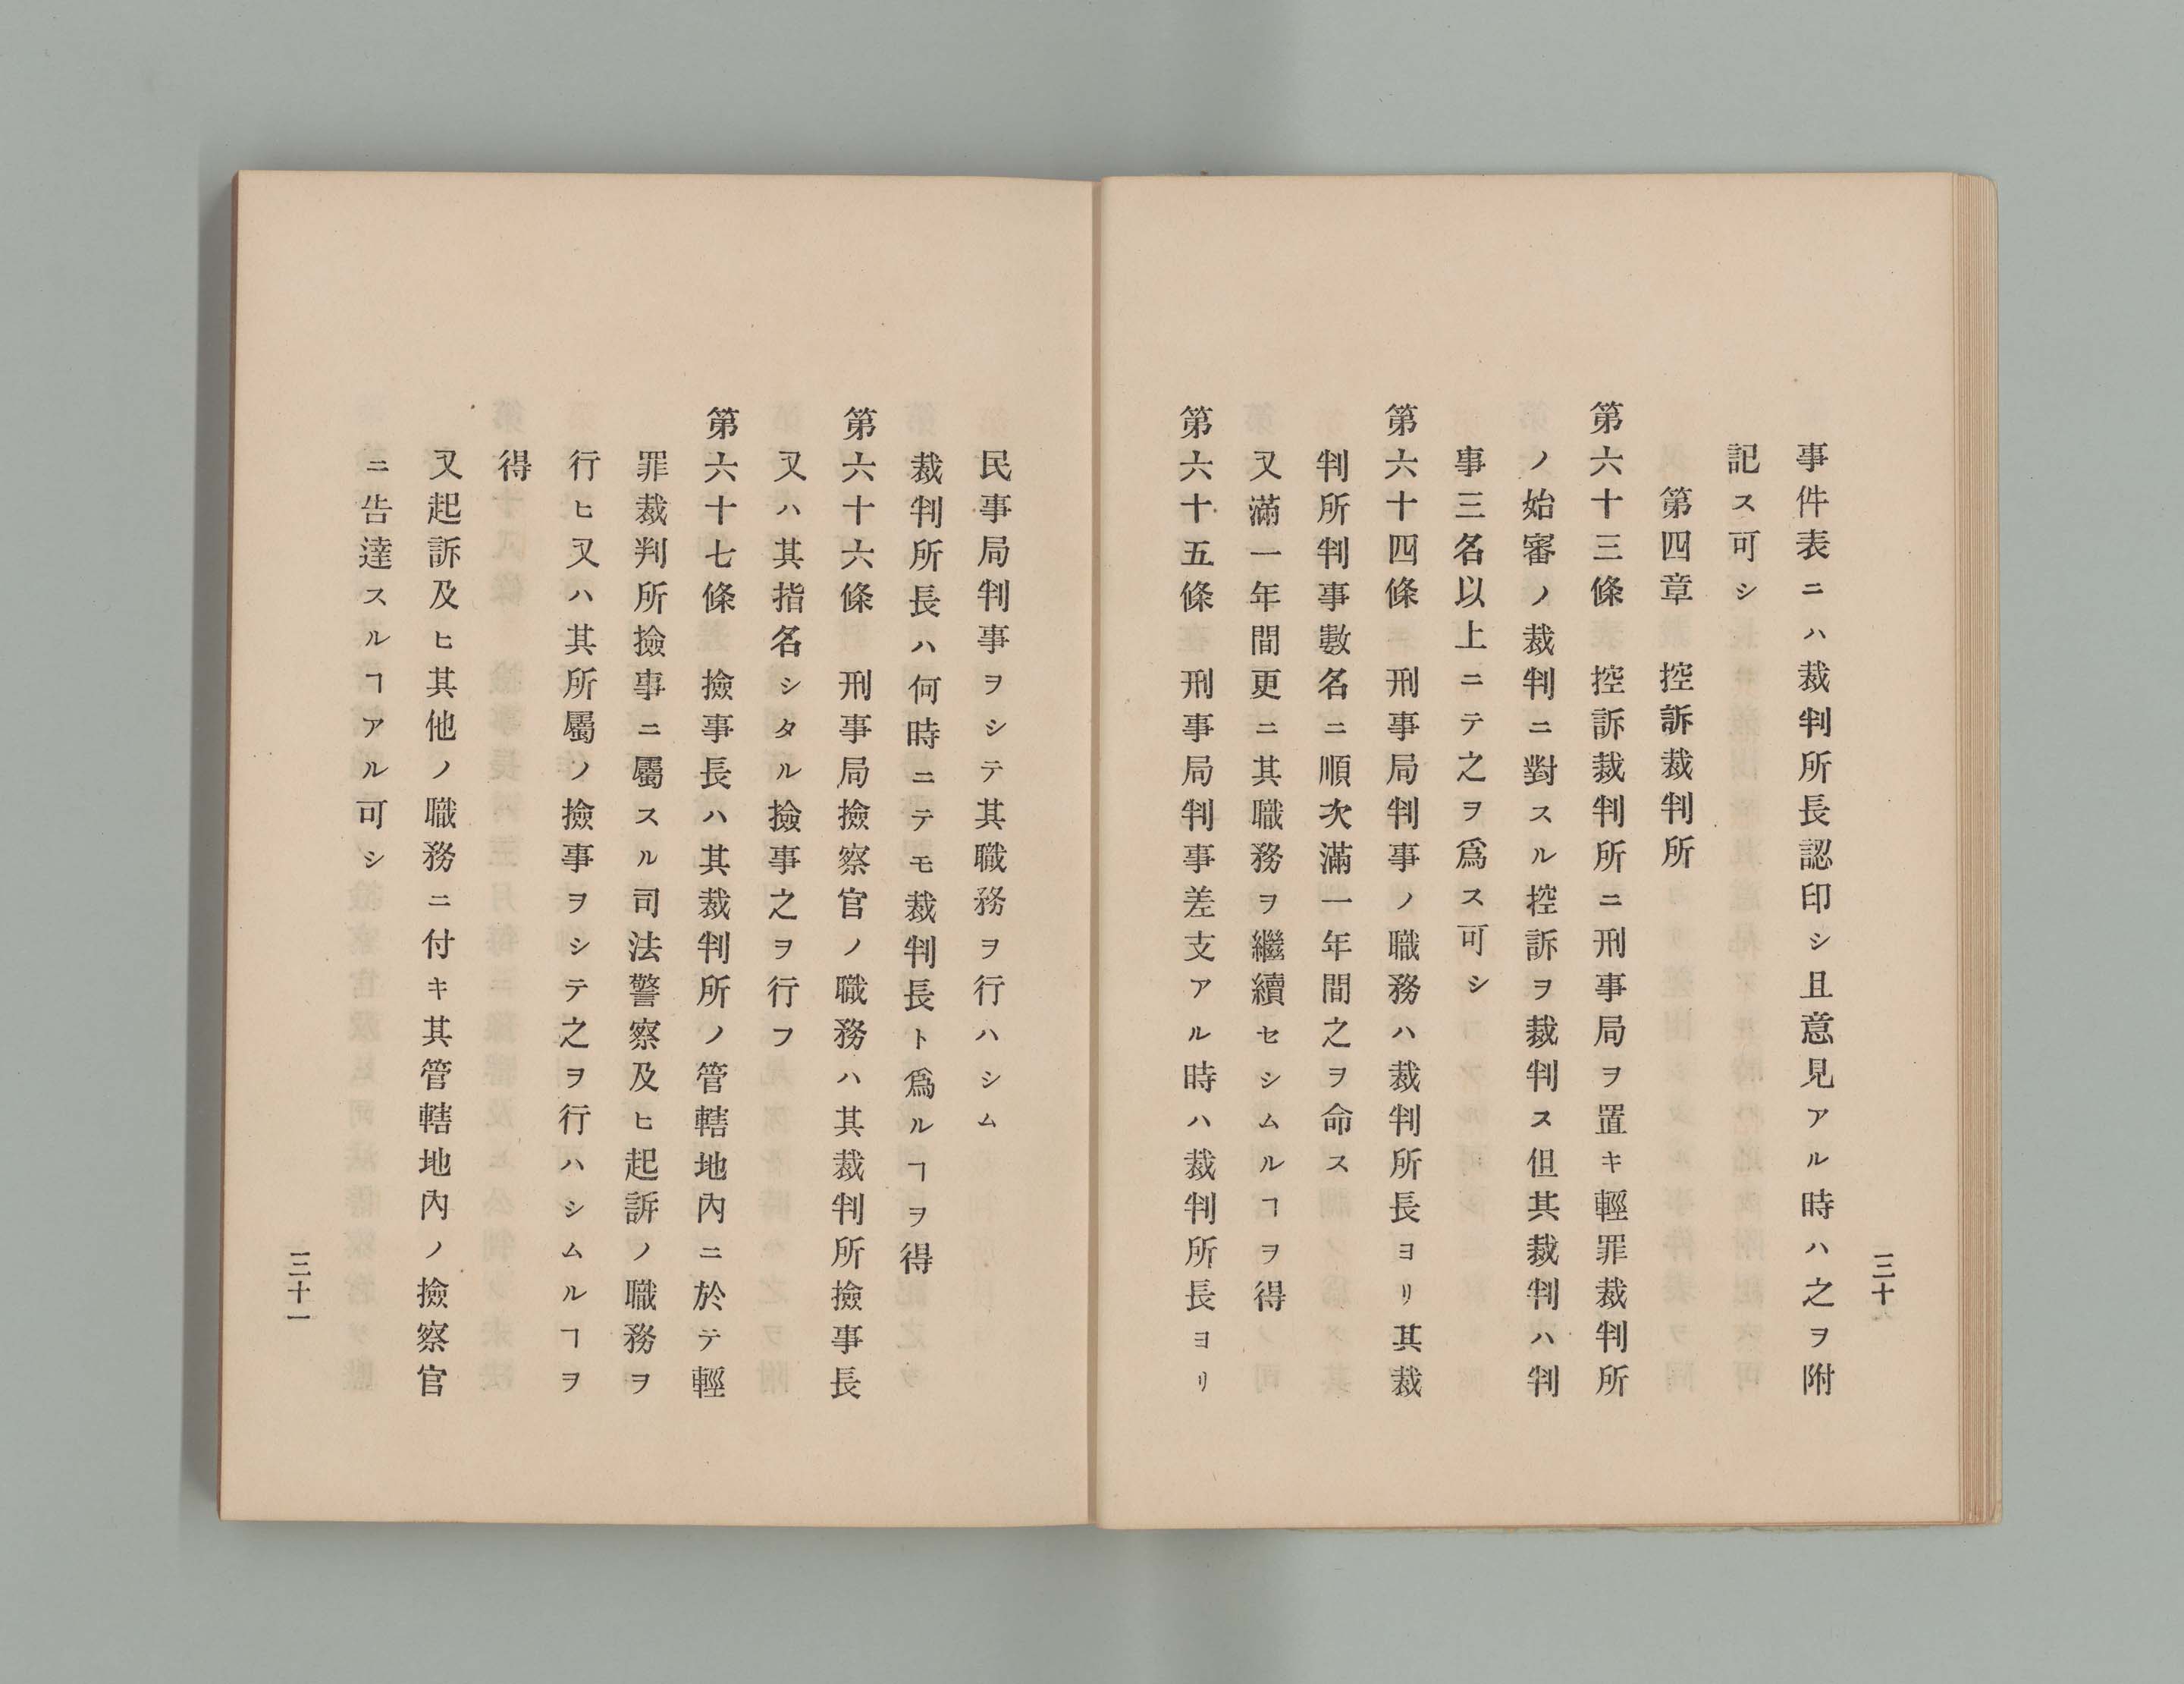 三十
事件表ニハ裁判所長認印シ且意見アル時ハ之ヲ附
記ス可シ
第四章　控訴裁判所
第六十三條　控訴裁判所ニ刑事局ヲ置キ輕罪裁判所
ノ始審ノ裁判ニ對スル控訴ヲ裁判ス但其裁判ハ判
事三名以上ニテ之ヲ爲ス可シ
第六十四條　刑事局判事ノ職務ハ裁判所長ヨリ其裁
判所判事數名ニ順次滿一年間之ヲ命ス
又滿一年間更ニ其職務ヲ繼續セシムルヿヲ得
第六十五條　刑事局判事差支アル時ハ裁判所長ヨリ
民事局判事ヲシテ其職務ヲ行ハシム
裁判所長ハ何時ニテモ裁判長ト爲ルヿヲ得
第六十六條　刑事局撿察官ノ職務ハ其裁判所撿事長
又ハ其指名シタル撿事之ヲ行フ
第六十七條　撿事長ハ其裁判所ノ管轄地內ニ於テ輕
罪裁判所撿事ニ屬スル司法警察及ヒ起訴ノ職務ヲ
行ヒ又ハ其所屬ノ撿事ヲシテ之ヲ行ハシムルヿヲ
得
又起訴及ヒ其他ノ職務ニ付キ其管轄地內ノ撿察官
ニ告達スルヿアル可シ
三十一